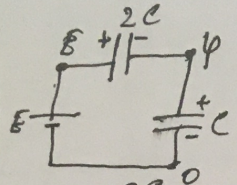 2C
ℰ + - φ
ℰ + C
-
0